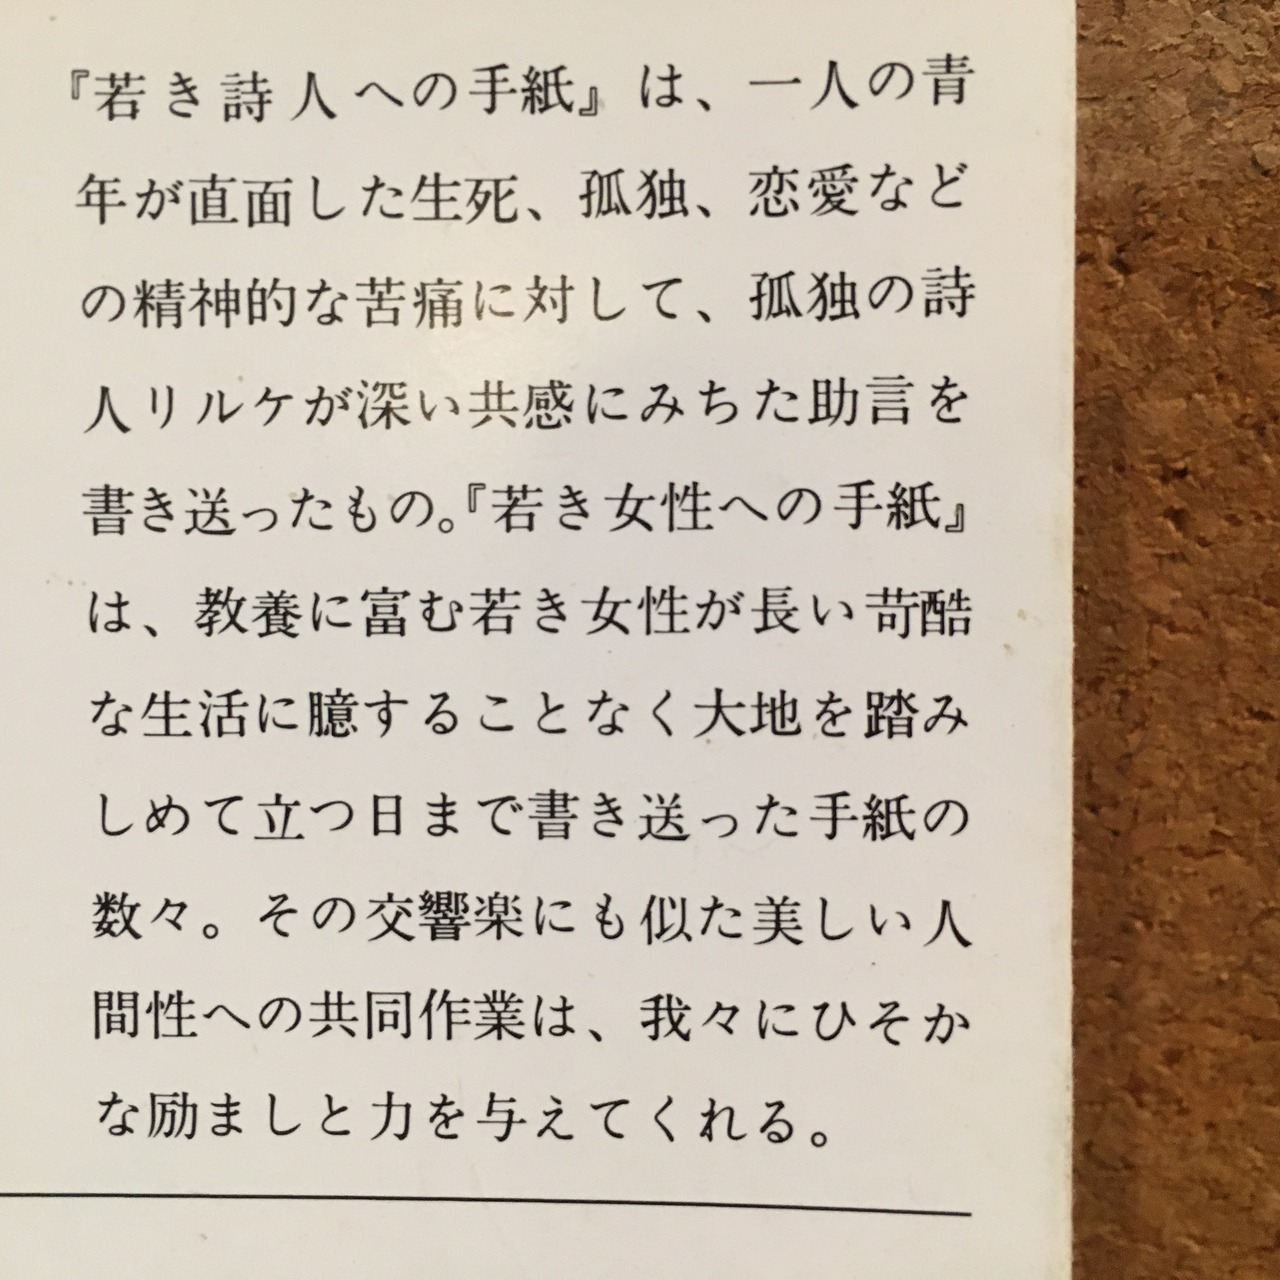 『若き詩人への手紙』は、一人の青
年が直面した生死、孤独、恋愛など
の精神的な苦痛に対して、孤独の詩
人リルケが深い共感にみちた助言を
書き送ったもの。『若き女性への手紙』
は、教養に富む若き女性が長い苛酷
な生活に臆することなく大地を踏み
しめて立つ日まで書き送った手紙の
数々。その交響楽にも似た美しい人
間性への共同作業は、我々にひそか
な励ましと力を与えてくれる。